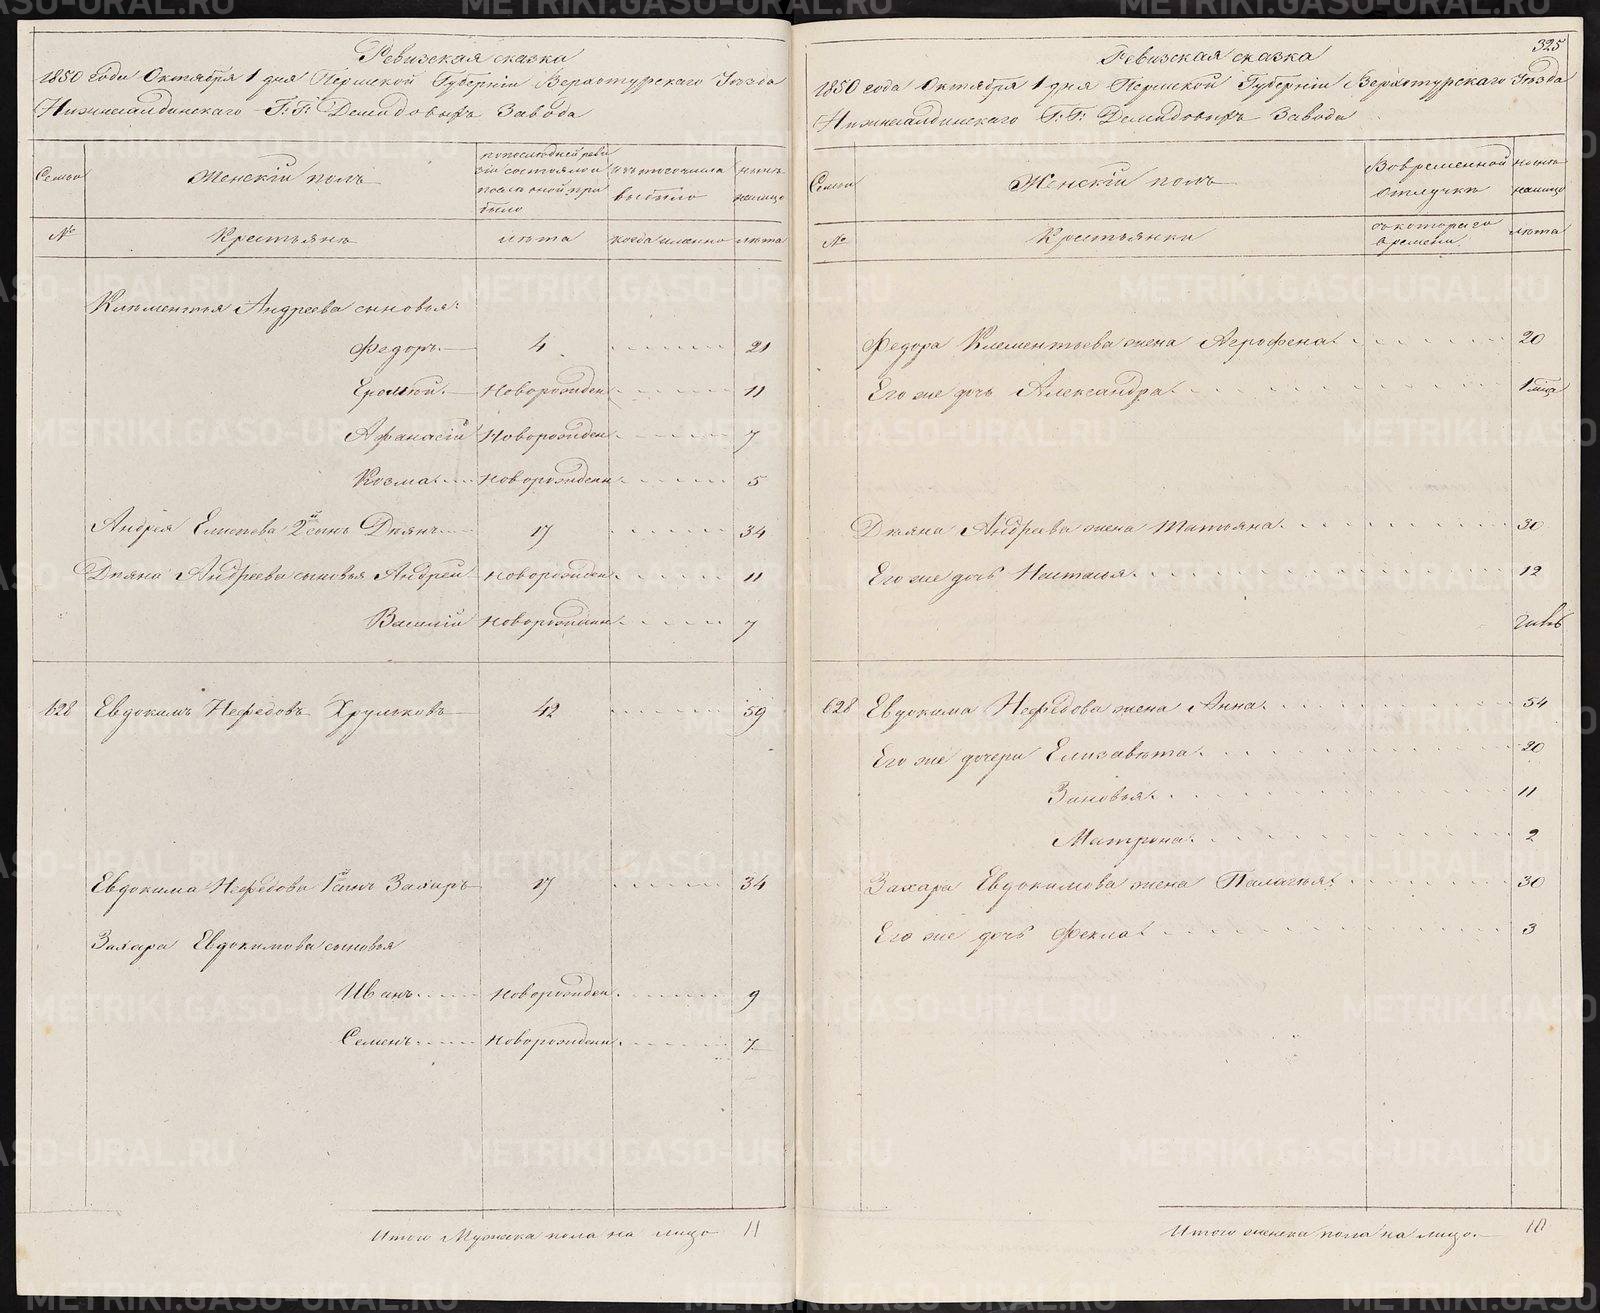 Ревизская сказка
1850 года Октября 1 дня Пермской Губерніи Верхотурскаго Уѣзда
Нижнесалдинскаго Г.Г. Демидовыхъ Завода
Семьи
Женскій полъ
попослѣдней реви
зіи состояло и
послѣ оной при
было
изъ того числа
выбыло
нынѣ
налицо
№
Крестьянъ
лѣта
когда именно
лѣта
Клементья Андреева сыновья:
Федоръ 4 21
Новорожден 11
Афанасій Новорожден 7
Козма Новорожденн 5
Андрея 2й сынъ Дѣянъ 17 34
Дѣяна Андреева сыновья Андрей Новорожден 11
Василій Новорожденн 7
628 Евдокимъ Нефедовъ Хрульковъ 42 59
Евдокима Нефедова 1й сынъ Захаръ 17 34
Захара Евдокимова сыновья
Иванъ Новорожден 9
Семенъ Новорожденн 7
Итого Мужска пола на лицо 11
325
Ревизская сказка
1850 года Октября 1 дня Пермской Губерніи Верхотурскаго Уѣзда
Нижнесалдинскаго Г.Г. Демидовыхъ Завода
Семьи
Женскій полъ
Вовременной
отлучкѣ
нынѣ
налицо
№
Крестьянки
съ котораго
времени
лѣта
Федора Клементьева жена Агрофена 20
Его же дочь Александра 1
Дѣяна Андреева жена Татьяна 30
Его же дочь Настасья 12
628 Евдокима Нефедова жена Анна 54
Его же дочери Елизавѣта 20
Зиновья 11
Матрона 2
Захара Евдокимова жена Палагѣя 30
Его же дочь Фекла 3
Итого женска пола на лицо 10
METRIKI.GASO-URAL.RU